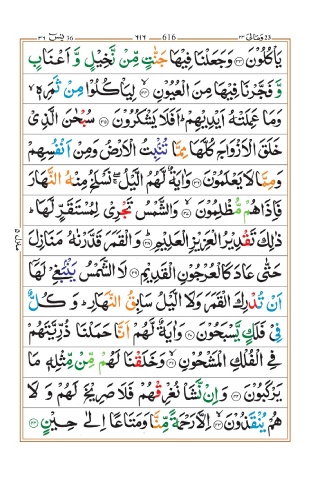 وَمَالِيَ ٢٣ 616 ٦١٦ يٰسٓ ٣٦
يَاْكُلُوْنَ ٣٣ وَجَعَلْنَا فِيْهَا جَنّٰتٍ مِّنْ نَّخِيْلٍ وَّ اَعْنَابٍ
وَّ فَجَّرْنَا فِيْهَا مِنَ الْعُيُوْنِ ٣٤ لِيَاْكُلُوْا مِنْ ثَمَرِهٖ ۙ
وَمَا عَمِلَتْهُ اَيْدِيْهِمْ ؕ اَفَلَا يَشْكُرُوْنَ ٣٥ سُبْحٰنَ الَّذِيْ
خَلَقَ الْاَزْوَاجَ كُلَّهَا مِمَّا تُنْۢبِتُ الْاَرْضُ وَمِنْ اَنْفُسِهِمْ
وَمِمَّا لَا يَعْلَمُوْنَ ٣٦ وَاٰيَةٌ لَّهُمُ الَّيْلُ ۖۚ نَسْلَخُ مِنْهُ النَّهَارَ
فَاِذَا هُمْ مُّظْلِمُوْنَ ٣٧ وَالشَّمْسُ تَجْرِيْ لِمُسْتَقَرٍّ لَّهَا ؕ
ذٰلِكَ تَقْدِيْرُ الْعَزِيْزِ الْعَلِيْمِ ٣٨ وَ الْقَمَرَ قَدَّرْنٰهُ مَنَازِلَ
حَتّٰى عَادَ كَالْعُرْجُوْنِ الْقَدِيْمِ ٣٩ لَا الشَّمْسُ يَنْۢبَغِيْ لَهَاۤ
اَنْ تُدْرِكَ الْقَمَرَ وَلَا الَّيْلُ سَابِقُ النَّهَارِ ؕ وَ كُلٌّ
فِيْ فَلَكٍ يَّسْبَحُوْنَ ٤٠ وَاٰيَةٌ لَّهُمْ اَنَّا حَمَلْنَا ذُرِّيَّتَهُمْ
فِي الْفُلْكِ الْمَشْحُوْنِ ٤١ وَخَلَقْنَا لَهُمْ مِّنْ مِّثْلِهٖ مَا
يَرْكَبُوْنَ ٤٢ وَاِنْ نَّشَاْ نُغْرِقْهُمْ فَلَا صَرِيْخَ لَهُمْ وَ لَا
هُمْ يُنْقَذُوْنَ ٤٣ اِلَّا رَحْمَةً مِّنَّا وَمَتَاعًا اِلٰى حِيْنٍ ٤٤